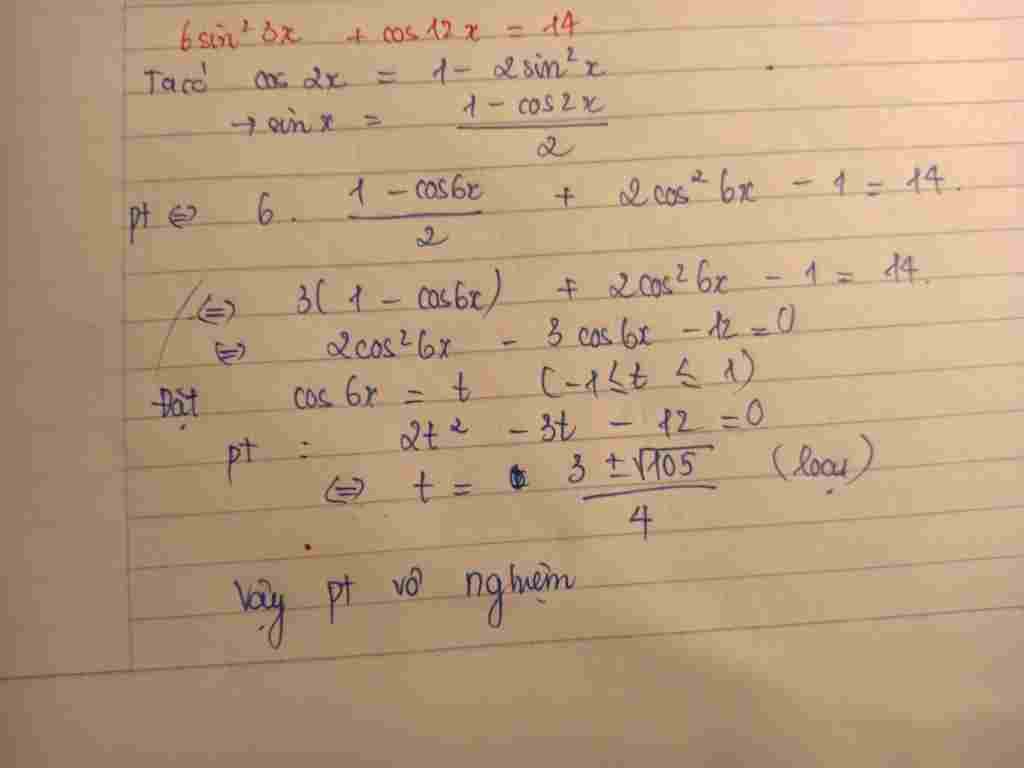 6sin² 3x + cos12x = 14
Ta có cos 2x = 1 - 2sin²x
→ sin x = (1 - cos2x)/2
pt ⇔ 6 . (1 - cos6x)/2 + 2cos² 6x - 1 = 14.
⇔ 3(1 - cos6x) + 2cos²6x - 1 = 14.
⇔ 2cos²6x - 3cos6x - 12 = 0
Đặt cos 6x = t (-1 ≤ t ≤ 1)
pt : 2t² - 3t - 12 = 0
⇔ t = (3 ± √105)/4 (loại)
Vậy pt vô nghiệm